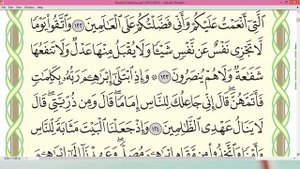 ٱلَّتِيٓ أَنۡعَمۡتُ عَلَيۡكُمۡ وَأَنِّي فَضَّلۡتُكُمۡ عَلَى ٱلۡعَٰلَمِينَ ١٢٢ وَٱتَّقُواْ يَوۡمٗا
لَّا تَجۡزِي نَفۡسٌ عَن نَّفۡسٖ شَيۡـٔٗا وَلَا يُقۡبَلُ مِنۡهَا عَدۡلٞ وَلَا تَنفَعُهَا
شَفَٰعَةٞ وَلَا هُمۡ يُنصَرُونَ ١٢٣ وَإِذِ ٱبۡتَلَىٰٓ إِبۡرَٰهِـۧمَ رَبُّهُۥ بِكَلِمَٰتٖ
فَأَتَمَّهُنَّۖ قَالَ إِنِّي جَاعِلُكَ لِلنَّاسِ إِمَامٗاۖ قَالَ وَمِن ذُرِّيَّتِيۖ قَالَ
لَا يَنَالُ عَهۡدِي ٱلظَّٰلِمِينَ ١٢٤ وَإِذۡ جَعَلۡنَا ٱلۡبَيۡتَ مَثَابَةٗ لِّلنَّاسِ